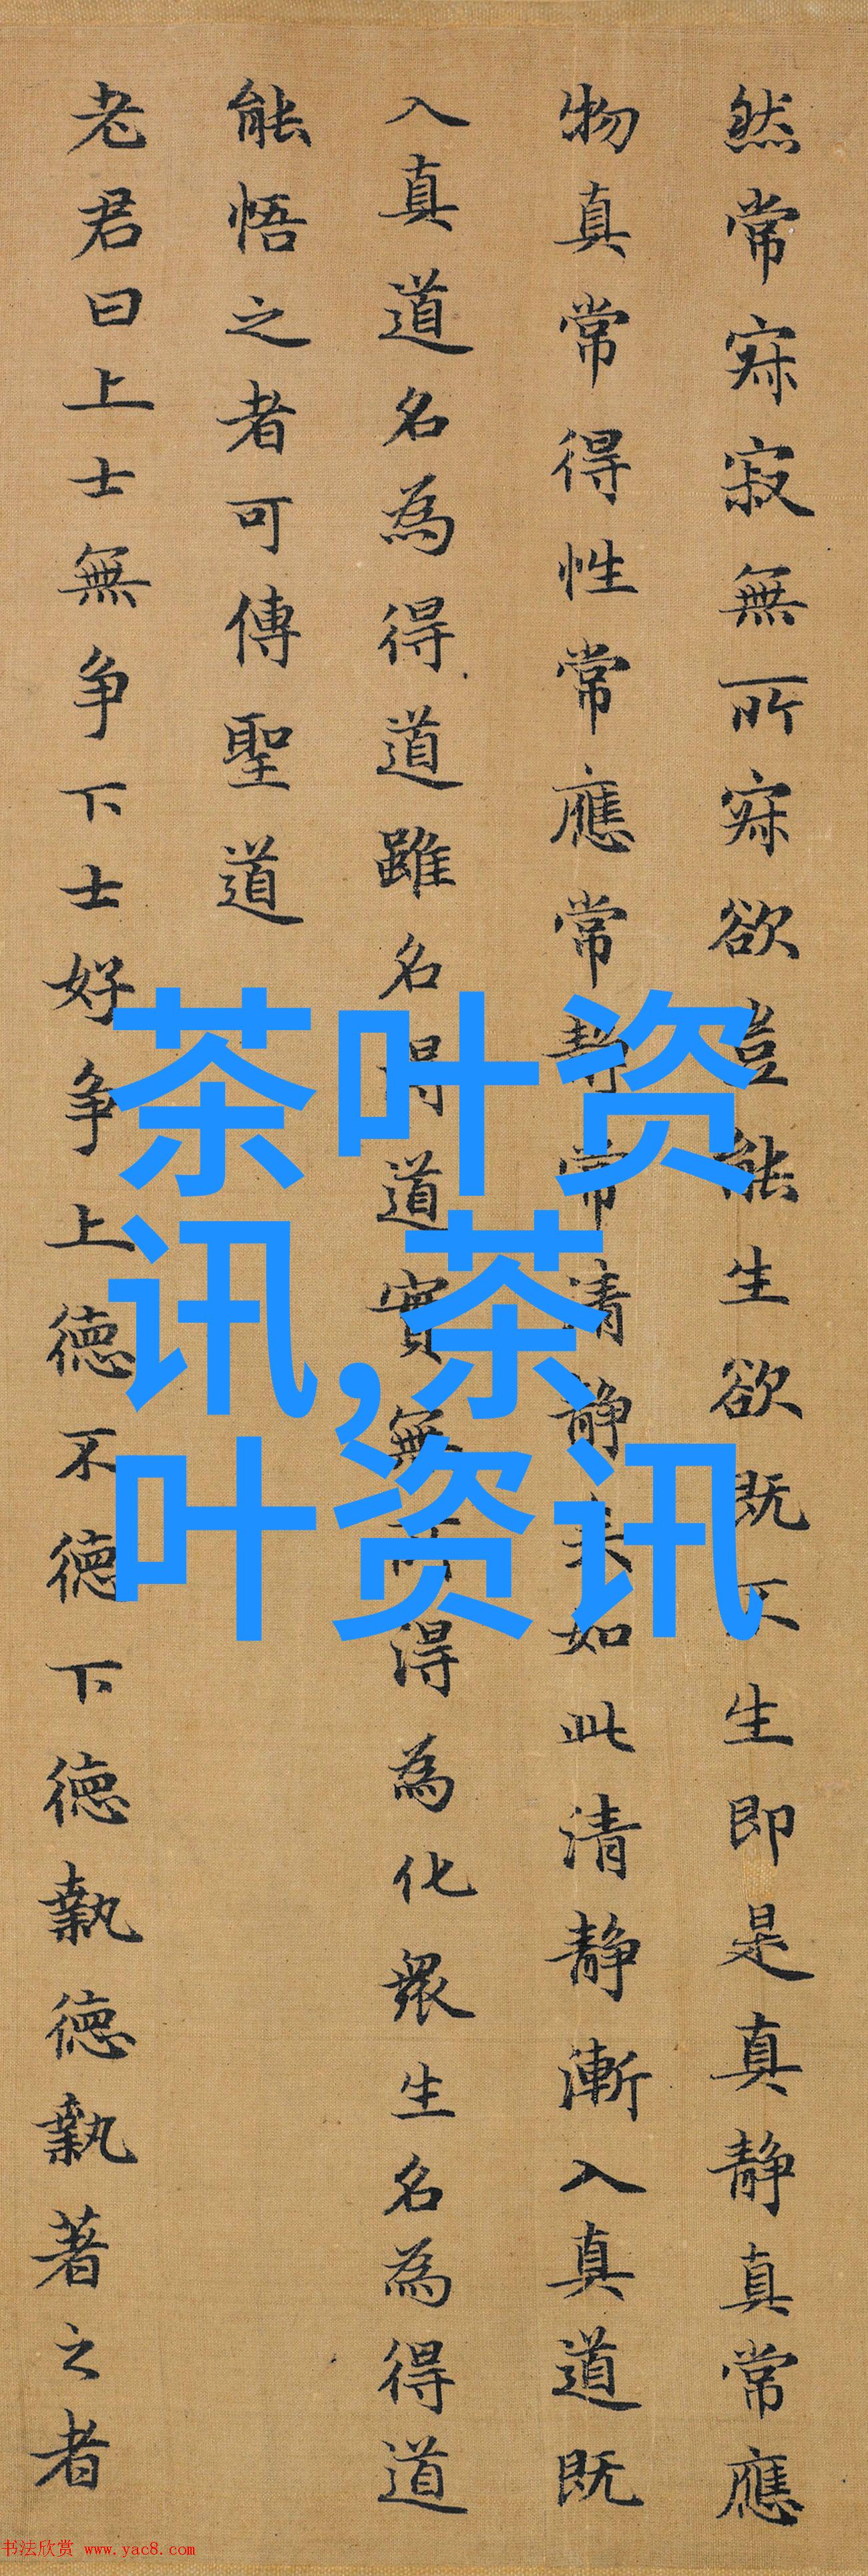 然常寂寂無所寂欲豈能生欲既不生即是真静真常應
物真常得性常應常静常清静矣如此清静漸入真道既
入真道名為得道雖名得道實無所得為化衆生名為得道
能悟之者可傳聖道
老君曰上士無争下士好争上德不德下德執德執著之者
茶叶资
讯,茶
叶资讯
书法欣赏 www.yac8.com